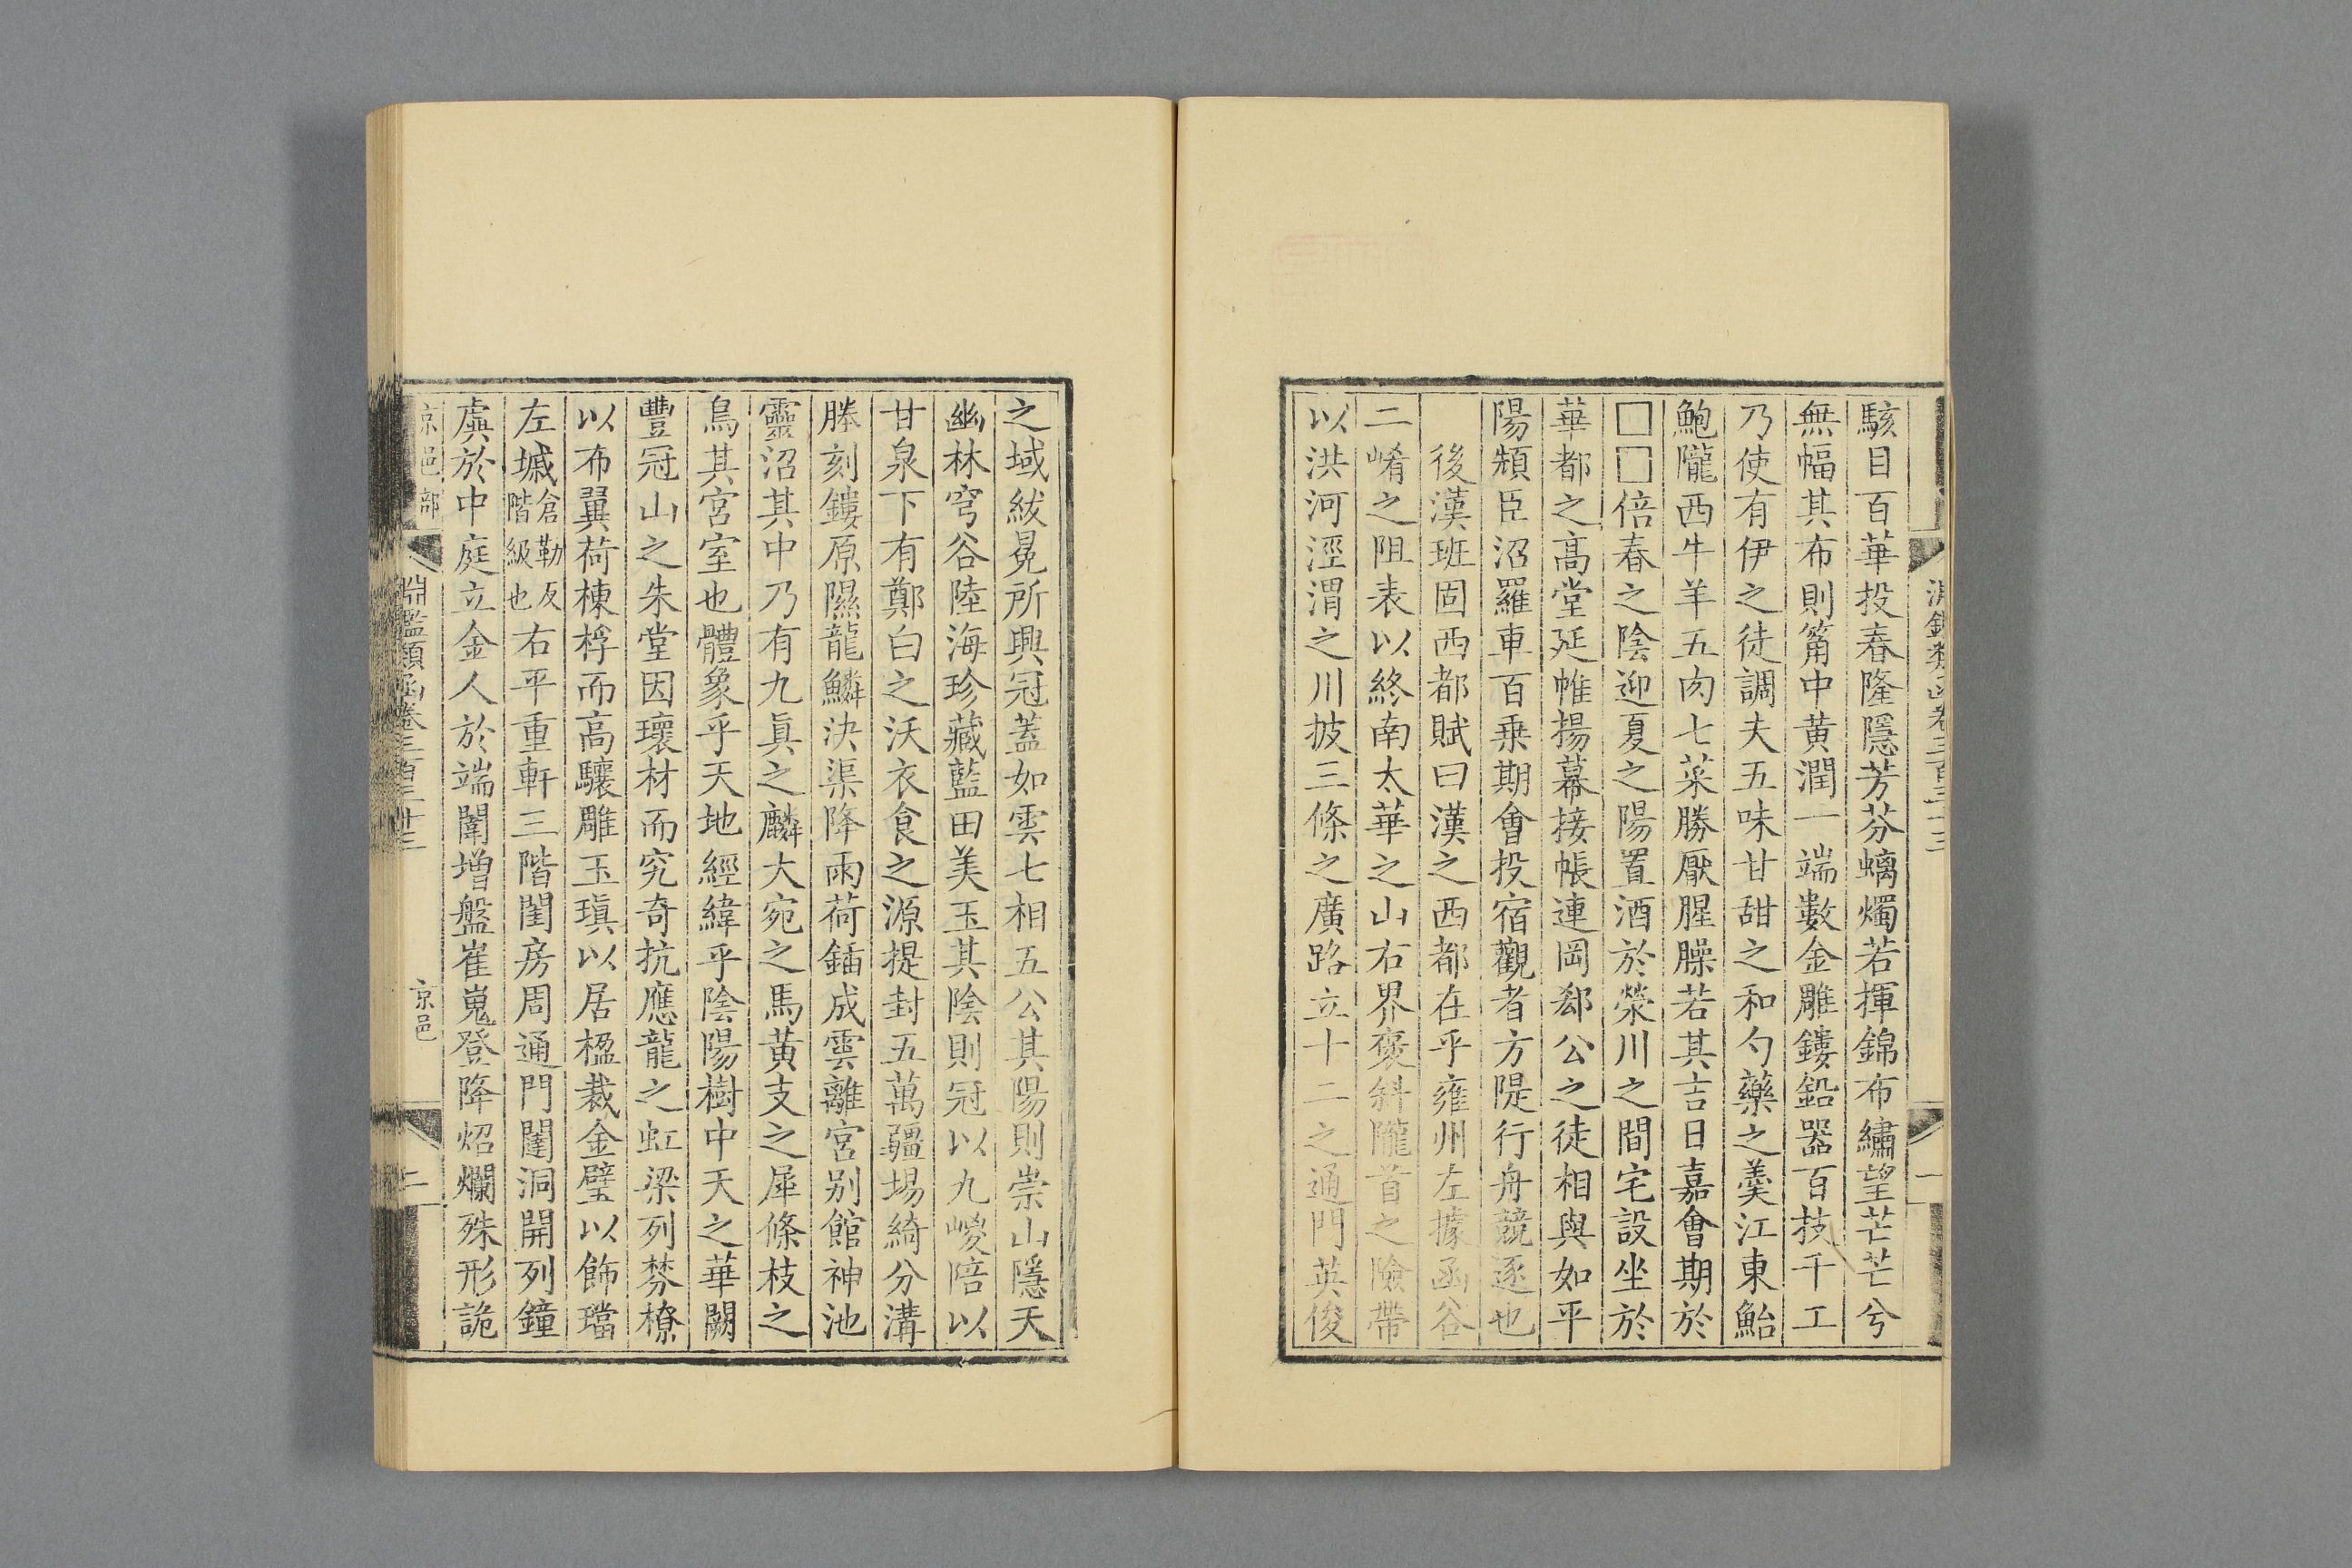 淵鑑類函卷三百三十三
一
駭目百華投春隆隱芳芬螭燭若揮錦布繡望芒芒兮
無幅其布則筩中黄潤一端數金雕鏤鉛器百技千工
乃使有伊之徒調夫五味甘甜之和勺藥之羹江東鮐
鮑隴西牛羊五肉七菜勝厭腥臊若其吉日嘉會期於
□□倍春之陰迎夏之陽置酒於滎川之間宅設坐於
華都之高堂延帷揚幕接帳連岡郄公之徒相與如平
陽頖臣沼羅車百乗期會投宿觀者方隄行舟競逐也
後漢班固西都賦曰漢之西都在乎雍州左據函谷
二崤之阻表以終南太華之山右界褒斜隴首之險帶
以洪河涇渭之川披三條之廣路立十二之通門英俊
之域紱冕所興冠蓋如雲七相五公其陽則崇山隱天
幽林穹谷陸海珍藏藍田美玉其陰則冠以九嵕陪以
甘泉下有鄭白之沃衣食之源提封五萬疆埸綺分溝
塍刻鏤原隰龍鱗決渠降雨荷鍤成雲離宮别館神池
靈沼其中乃有九真之麟大宛之馬黄支之犀條枝之
鳥其宮室也體象乎天地經緯乎陰陽樹中天之華闕
豐冠山之朱堂因瓌材而究奇抗應龍之虹梁列棼橑
以布翼荷棟桴而高驤雕玉瑱以居楹裁金璧以飾璫
左墄倉勒反階級也右平重軒三階閨房周通門闥洞開列鐘
虡於中庭立金人於端闈增盤崔嵬登降炤爛殊形詭
京邑部
淵鑑類函卷三百三十三
京邑
二